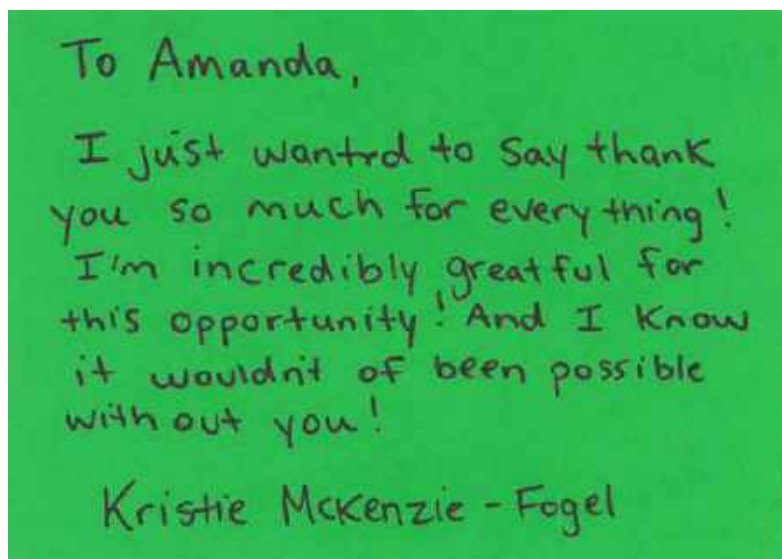 To Amanda,
I just wanted to say thank
you so much for everything!
I'm incredibly greatful for
this opportunity! And I know
it wouldn't of been possible
without you!
Kristie McKenzie-Fogel